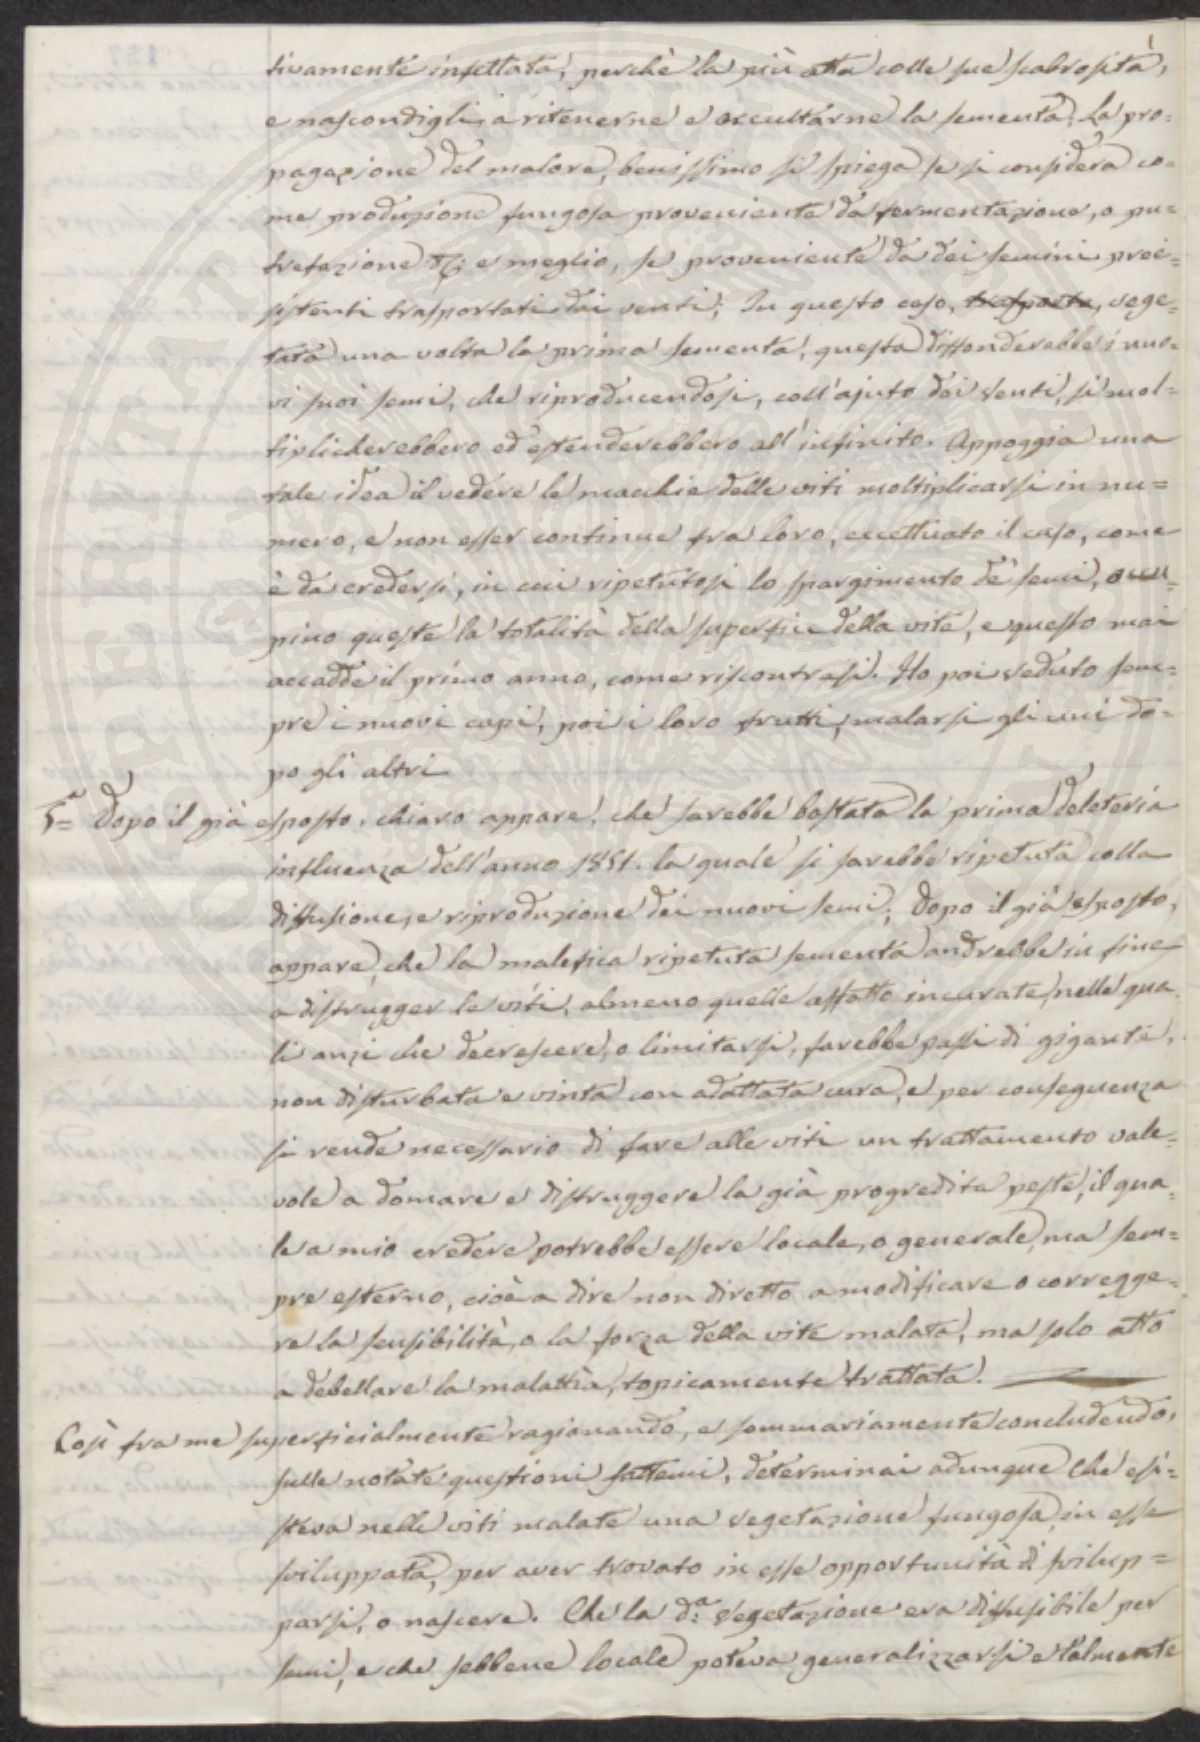 tivamente infettata, perchè la più atta colle sue scabrosità,
e nascondigli, a ritenerne e occultarne la sementa. La pro=
pagazione del malore, benissimo si spiega se si considera co=
me produzione fungosa proveniente da fermentazione, o pu=
trefazione &; e meglio, se proveniente da dei semini pree=
sistenti trasportati dai venti; In questo caso, trasporta, vege=
tata una volta la prima sementa, questa diffonderebbe i nuo=
vi suoi semi, che riproducendosi, coll'ajuto dei venti, si mol=
tiplicherebbero ed estenderebbero all'infinito. Appoggia una
tale idea il vedere le macchie delle viti moltiplicarsi in nu=
mero, e non esser continue fra loro, eccettuato il caso, come
è da credersi, in cui ripetutosi lo spargimento de' semi, occu=
pino queste la totalità della superficie della vite, e questo mai
accadde il primo anno, come riscontrasi. Ho poi veduto sem=
pre i nuovi capi, poi i loro frutti, malarsi gli uni do=
po gli altri
5.a= Dopo il già esposto, chiaro appare, che sarebbe bastata la prima deleteria
influenza dell'anno 1851. la quale si sarebbe ripetuta colla
diffusione, e riproduzione dei nuovi semi; Dopo il già esposto,
appare, che la malefica ripetuta sementa andrebbe in fine
a distrugger le viti, almeno quelle affatto incurate, nelle qua=
li anzi che decrescere, o limitarsi, farebbe passi di gigante,
non disturbata e vinta con adattata cura, e per conseguenza
si rende necessario di fare alle viti un trattamento vale=
vole a domare e distruggere la già progredita peste, il qua=
le a mio credere potrebbe essere locale, o generale, ma sem=
pre esterno, cioè a dire non diretto a modificare o corregge=
re la sensibilità, o la forza della vite malata, ma solo atto
a debellare la malattia, topicamente trattata.
Così fra me superficialmente ragionando, e sommariamente concludendo,
sulle notate questioni fattemi, determinai adunque Che esi=
steva nelle viti malate una vegetazione fungosa, in esse
sviluppata, per aver trovato in esse opportunità di svilup=
parsi, o nascere. Che la d.a vegetazione era diffusibile per
semi, e che sebbene locale poteva generalizzarsi e talmente